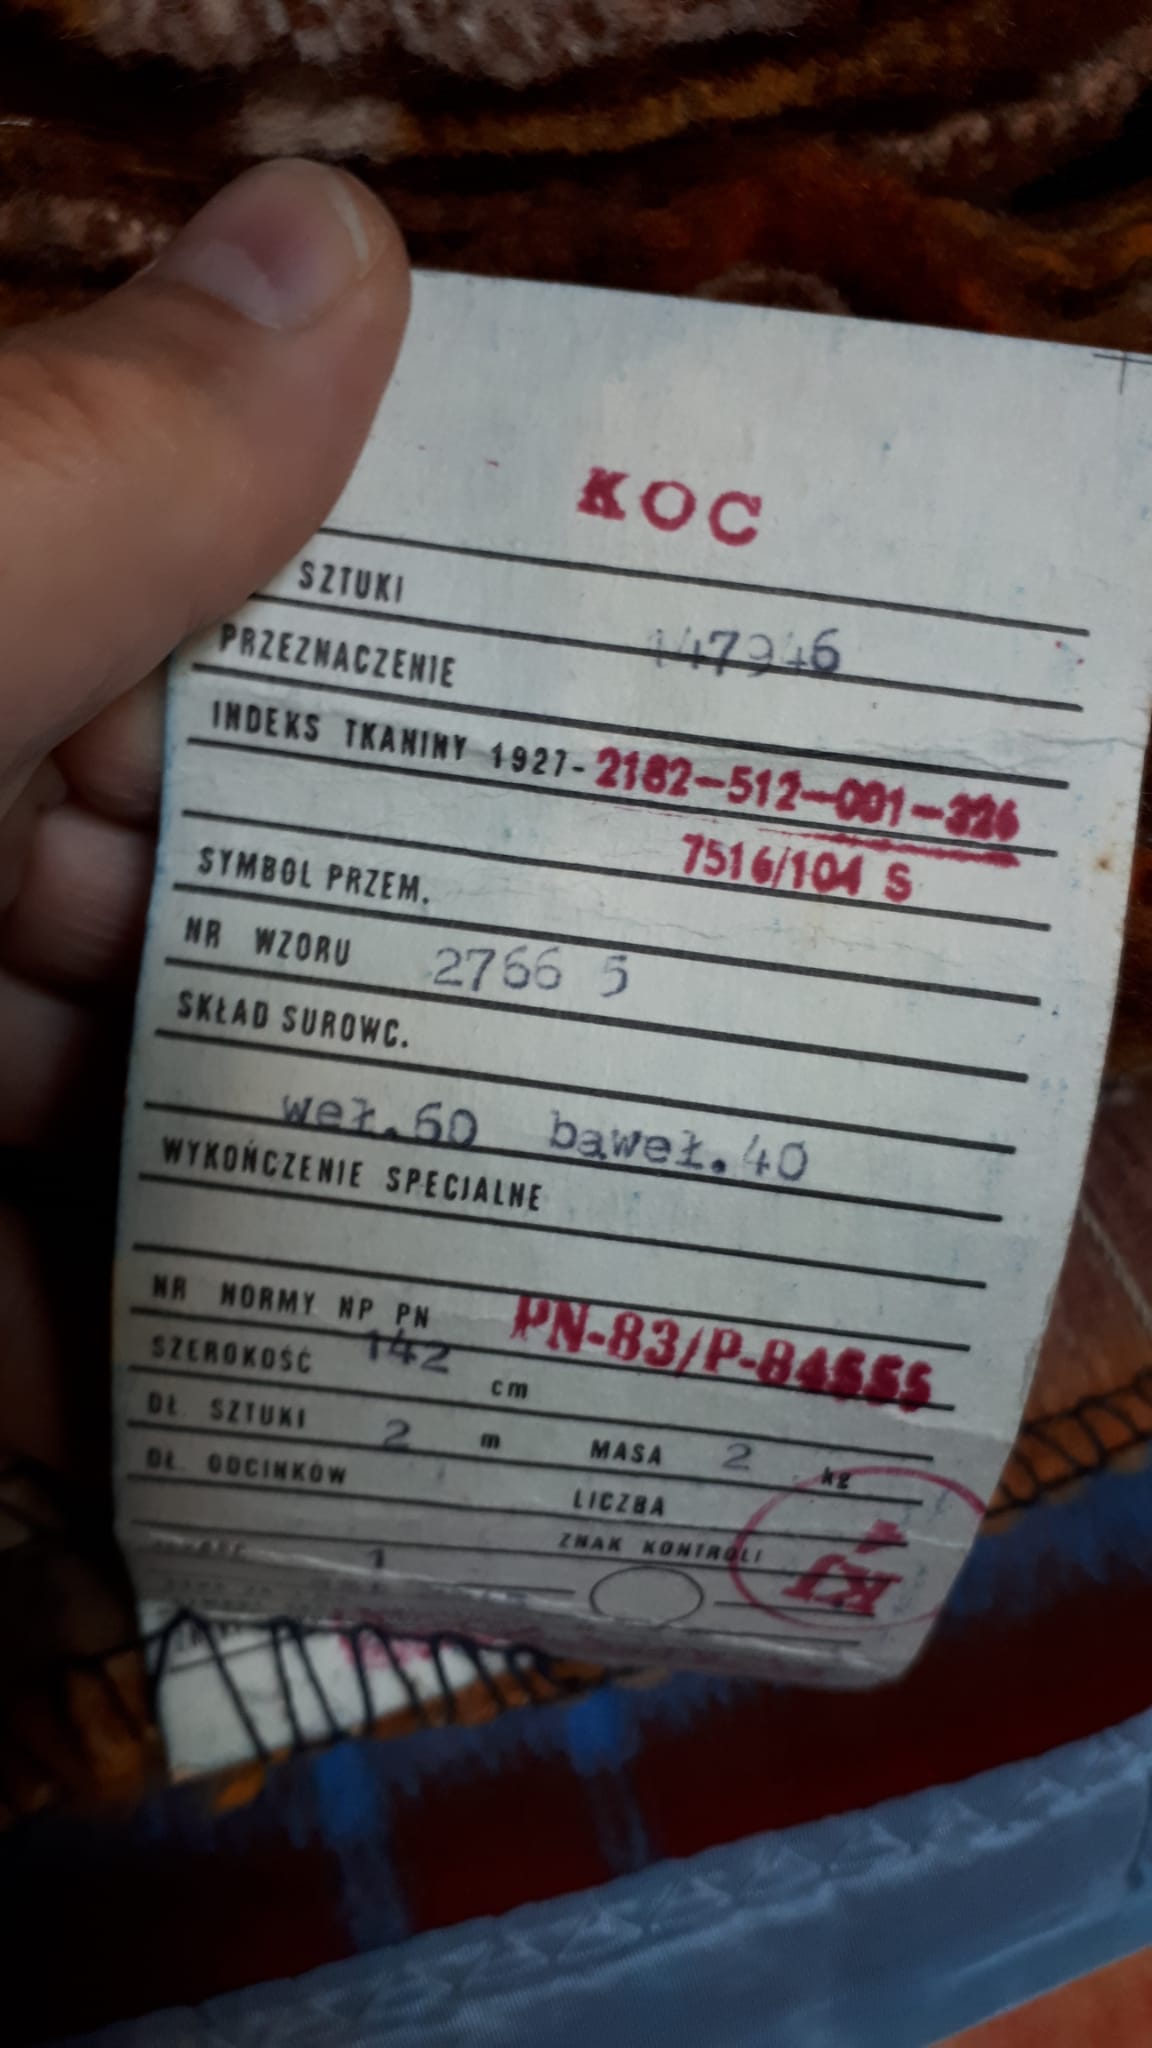 KOC
SZTUKI 147946
PRZEZNACZENIE
INDEKS TKANINY 1927- 2182-512-001-326
7516/104 S
SYMBOL PRZEM.
NR WZORU 2766 5
SKŁAD SUROWC.
weł.60 baweł.40
WYKOŃCZENIE SPECJALNE
NR NORMY NP PN PN-83/P-84555
SZEROKOŚĆ 142 cm
DŁ. SZTUKI 2 m MASA 2 kg
DŁ. ODCINKÓW LICZBA
ZNAK KONTROLI
1
KJ